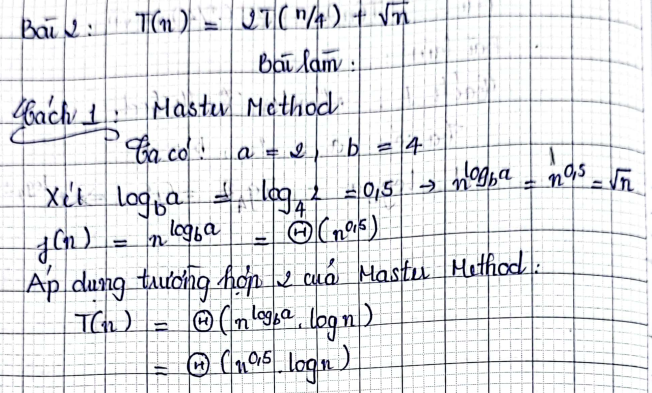 Bài 2: T(n) = 2T(n/4) + √n
Bài làm:
Cách 1: Master Method
Ta có: a = 2, b = 4
Xét log_b a = log_4 2 = 0,5 → n^{log_b a} = n^{0,5} = √n
f(n) = n^{log_b a} = Θ(n^{0,5})
Áp dụng trường hợp 2 của Master Method:
T(n) = Θ(n^{log_b a}. log n)
= Θ(n^{0,5}. log n)